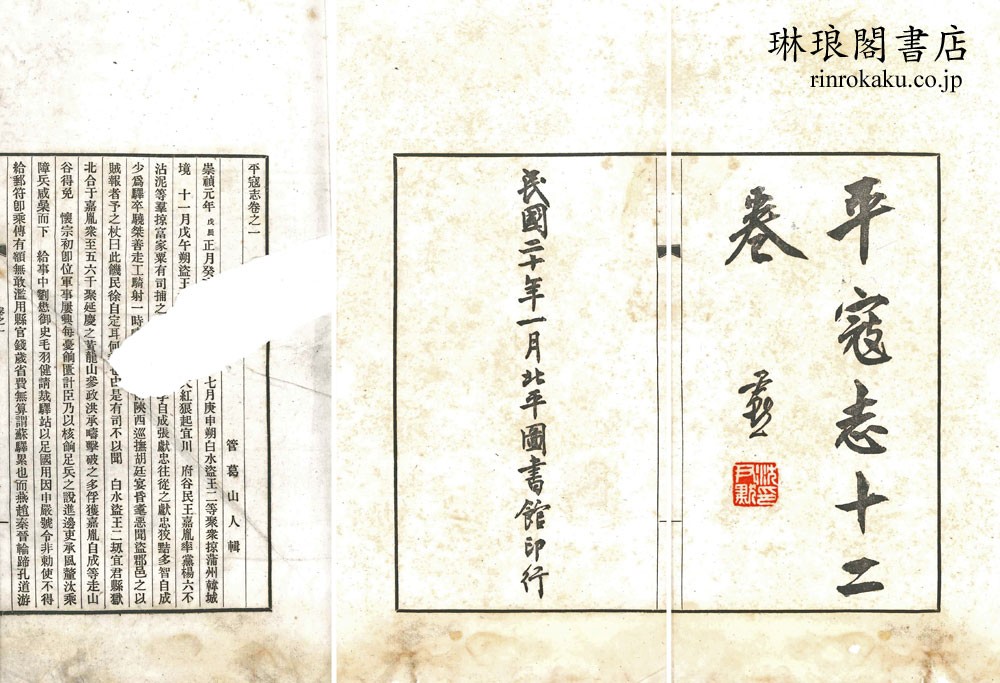 琳琅閣書店
rinrokaku.co.jp
平寇志十二
卷
沈尹默印
民國二十年一月北平圖書館印行
平寇志卷之一
管葛山人輯
崇禎元年 戊辰 正月癸
七月庚申朔白水盜王二等聚衆掠蒲州韓城
境 十一月戊午朔盜王
大紅狼起宜川 府谷民王嘉胤率黨楊六不
沾泥等羣掠富家粟有司捕之
李自成張獻忠往從之獻忠狡黠多智自成
少爲驛卒驍桀善走工騎射一時
陝西巡撫胡廷宴昏耄惡聞盜郡邑之以
賊報者予之杖曰此饑民徐自定耳
是有司不以聞 白水盜王二刼宜君縣獄
北合于嘉胤衆至五六千聚延慶之黃龍山參政洪承疇擊破之多俘獲嘉胤自成等走山
谷得免 懷宗初卽位軍事屢興每憂餉匱計臣乃以核餉足兵之說進邊吏承風釐汰乘
障兵咸槩而下 給事中劉懋御史毛羽健請裁驛站以足國用因申嚴號令非勅使不得
給郵符卽乘傳有額無敢濫用縣官錢歲省費無算謂蘇驛累也而燕趙秦晉輪蹄孔道游